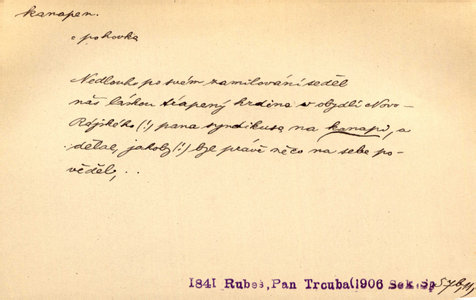 kanapen.
pohovka
Nedlouho po svém zamilování seděl
náš láskou trápený hrdina v obydlí Novo-
Rájského (!) pana syndikusa na kanapi, a
dělal, jakoby (!) byl právě něco na sebe po-
věděl, ..
1841 Rubeš, Pan Trouba(1906 Seb. Sp